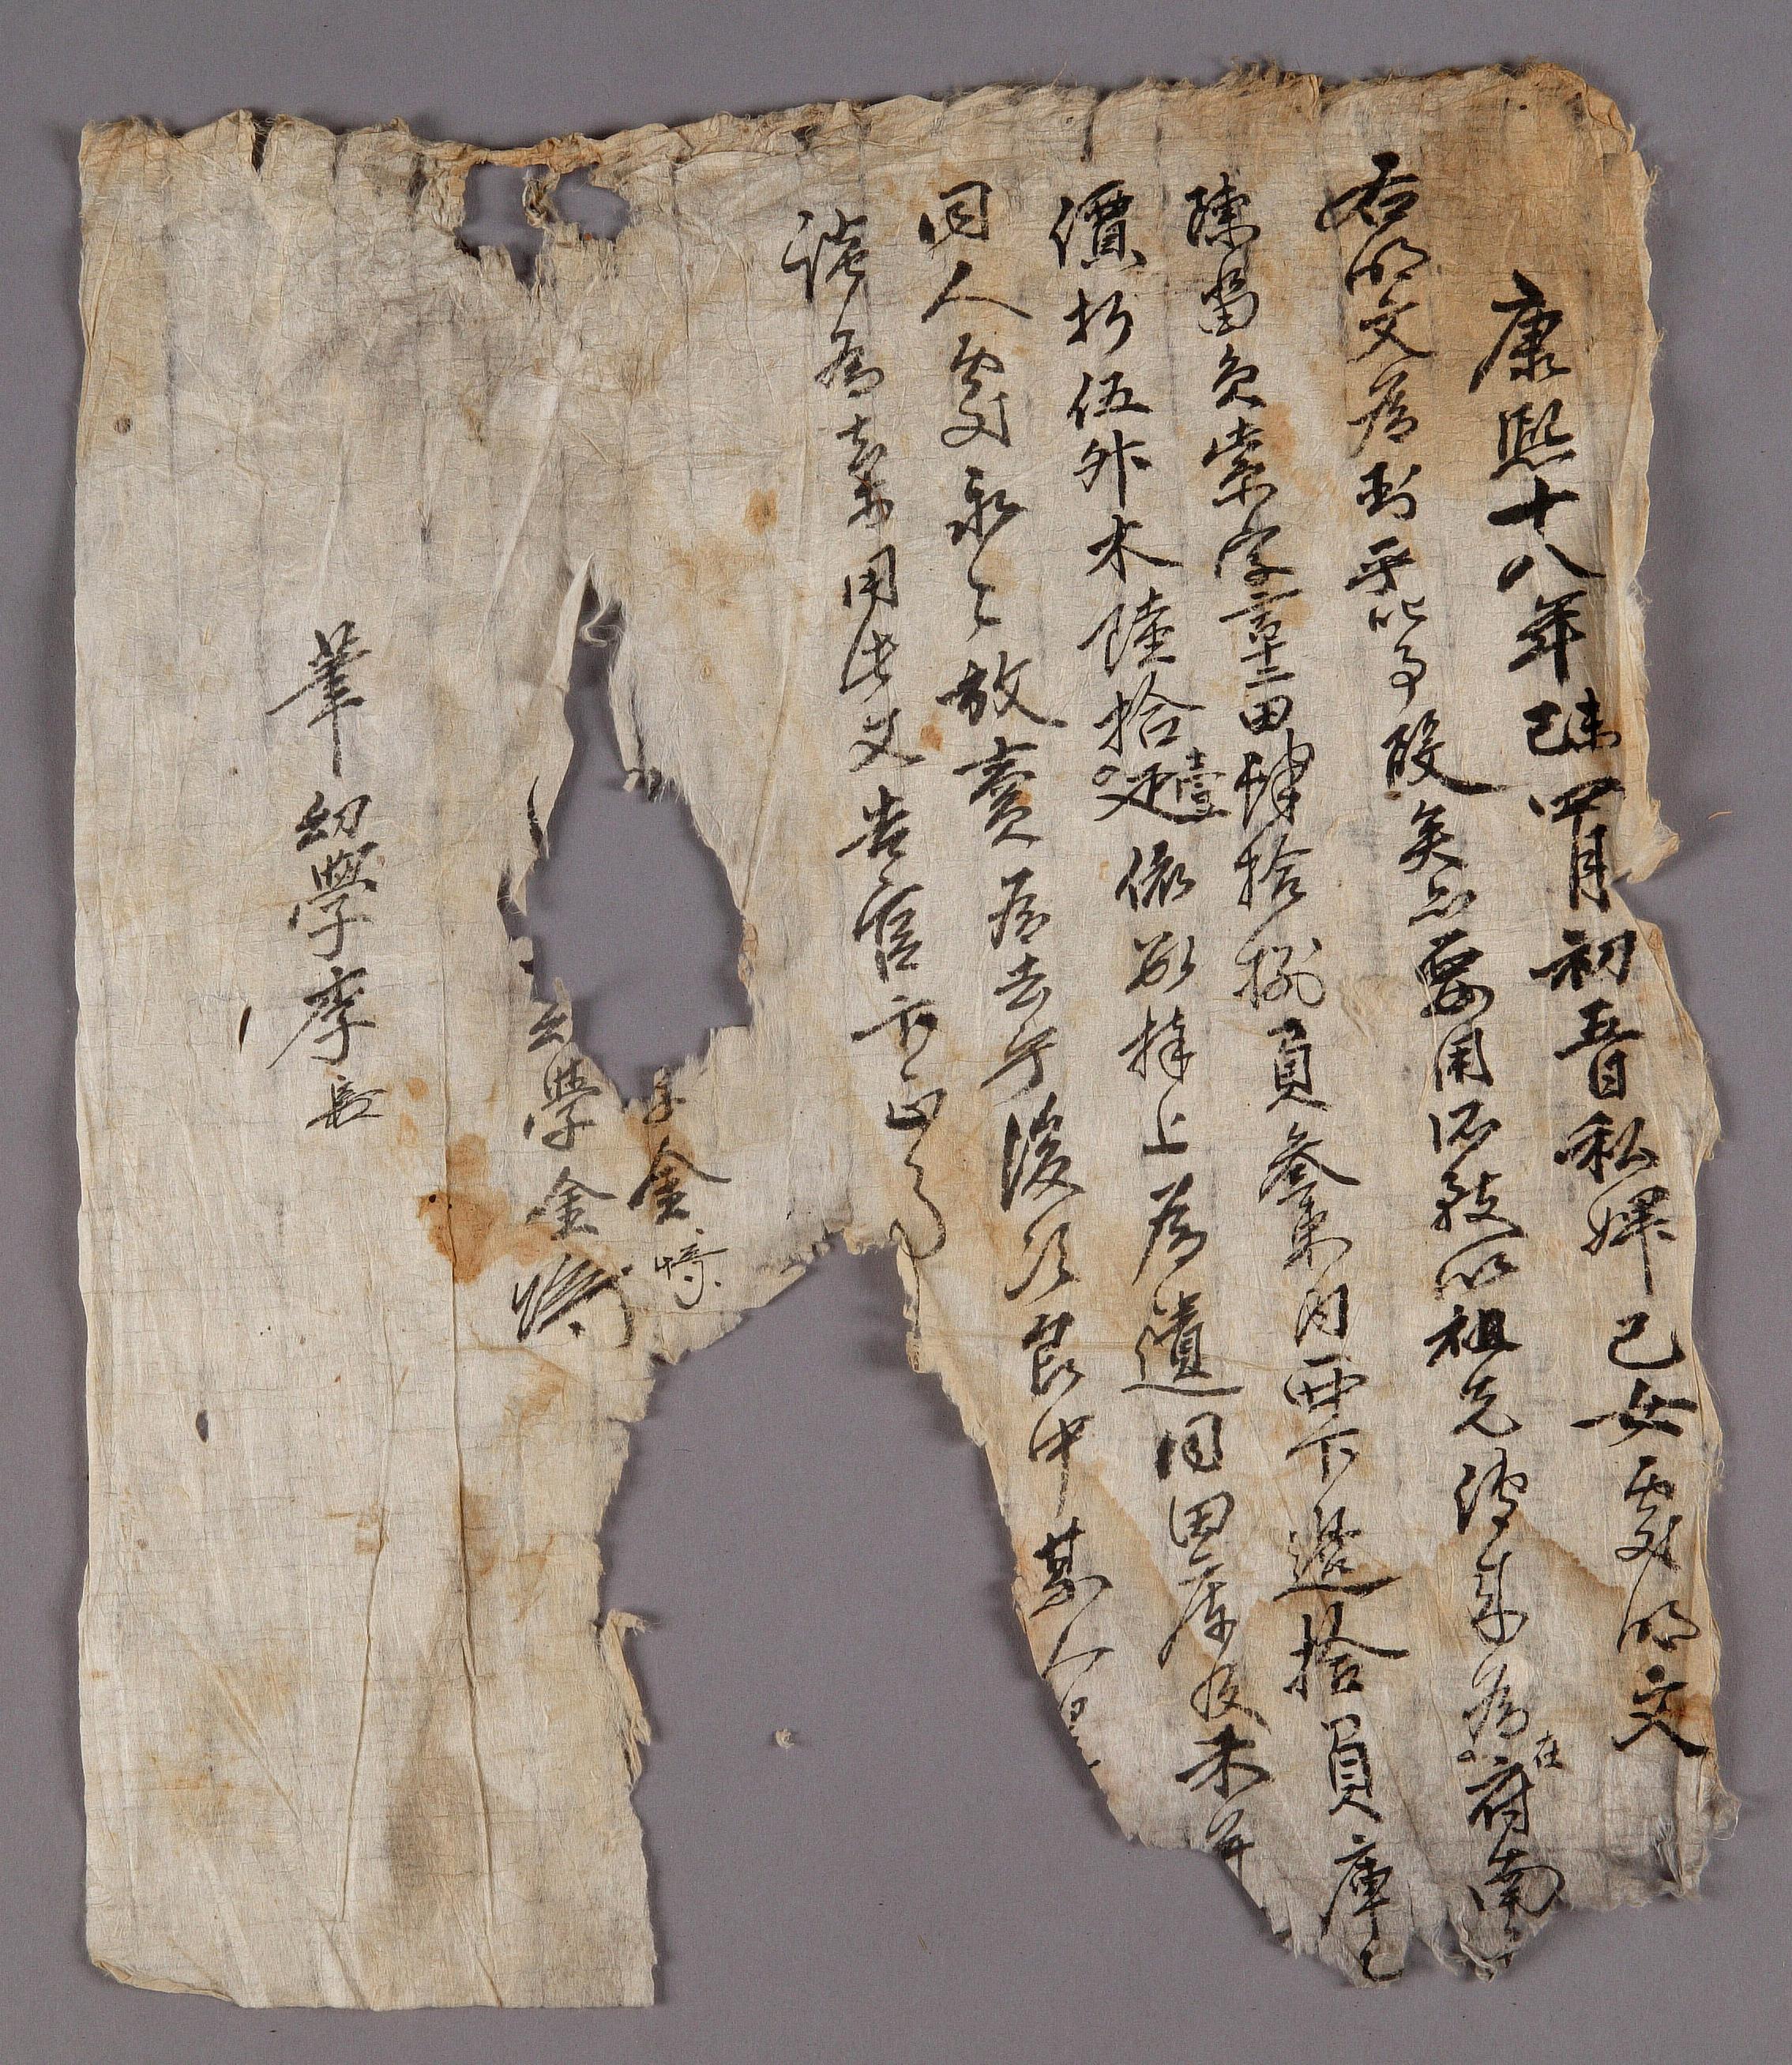 康熙十八年己未四月初五日私婢己女處明文
右明文爲臥乎叱事段矣亦要用所致以祖先傳來爲在府南
陳畓員棠字章十二田肆拾捌負參束內西下邊拾負庫乙
價折伍升木陸拾壹疋依數捧上爲遣同田庫及本文
同人處永永放賣爲去乎後次良中某人
談爲去等用此文告官卞正事
金崎
幼學金
筆幼學李